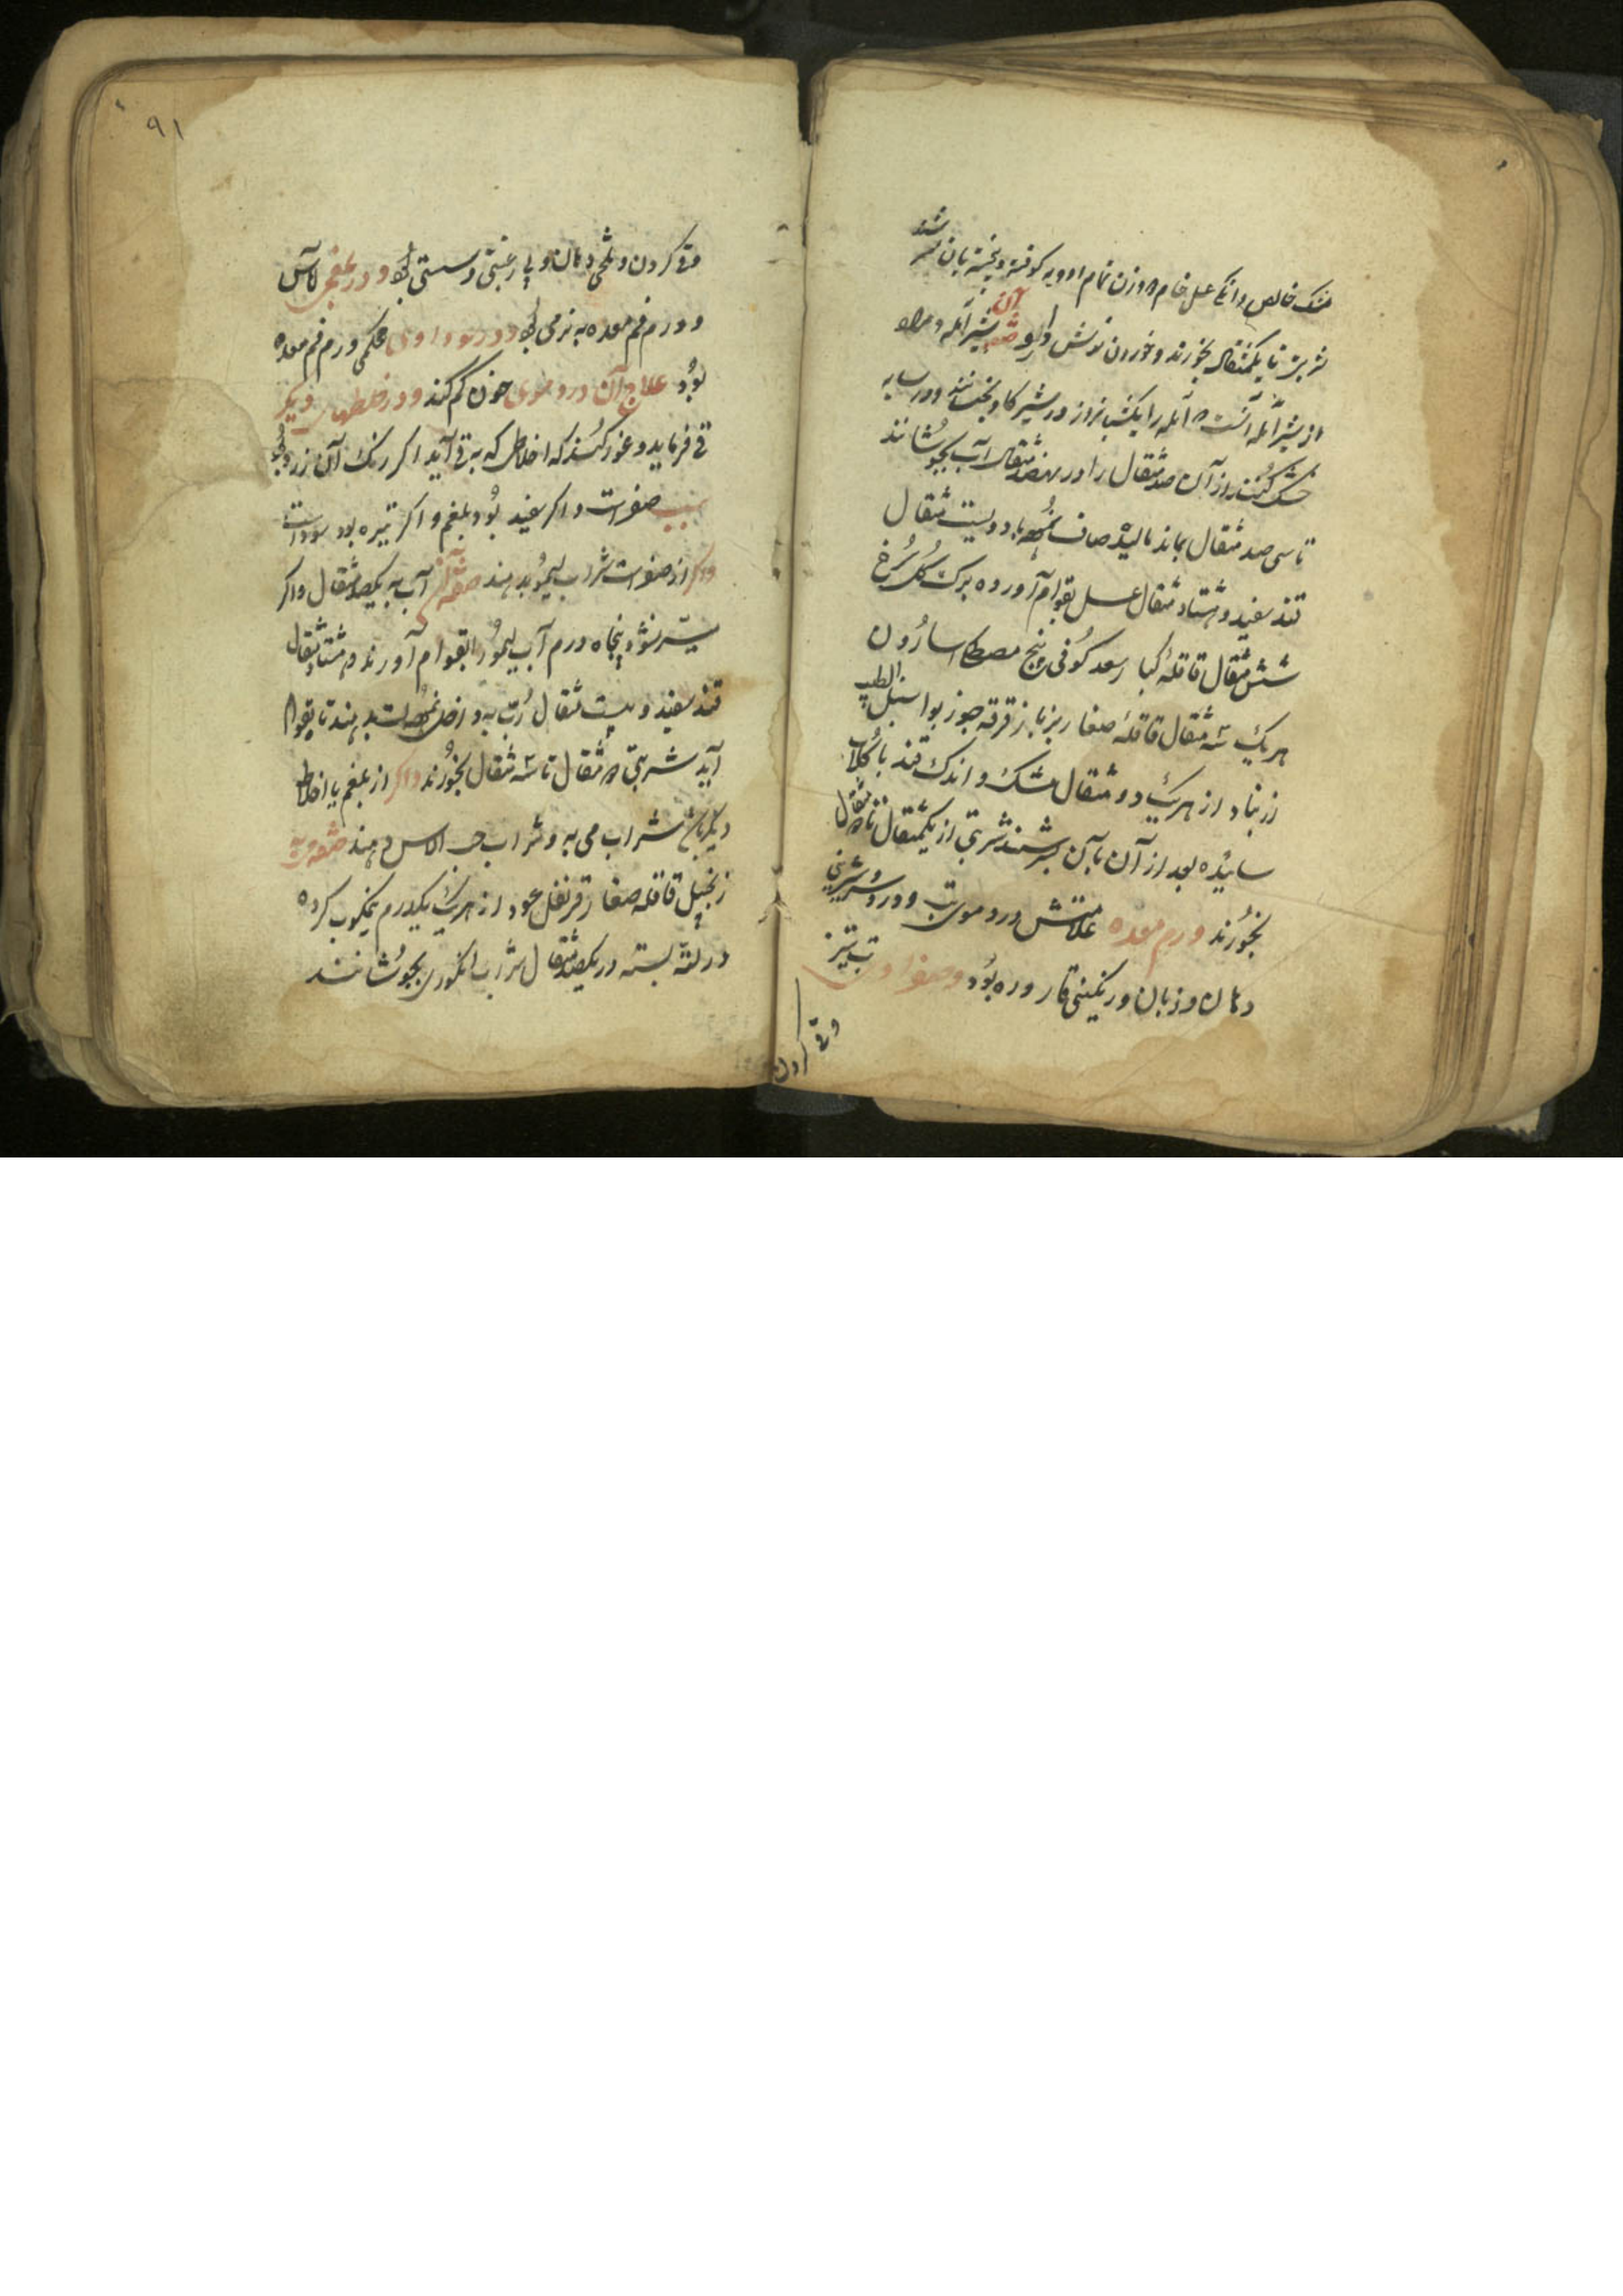 مشک خالص دانکی عسل خام ۳ وزن تمام ادویه کوفته و بیخته بآن
شربتی تا یکمثقال بخورند و خوردن نوش دارو صفة آن شیر آمله و مراد
از شیر آمله آنست که آمله را یکشبانروز در شیر کاو بخیسانند و در سایه
خشک کنند و از آن صد مثقال را در هفتصد مثقال آب بجوشانند
تا سی صد مثقال بماند مالیده صاف نموده با دویست مثقال
قند سفید و هشتاد مثقال عسل بقوام آورده برک کل سرخ
شش مثقال قاقلهٔ کبار سعد کوفی پنج مصطکی اسارون
هریک سه مثقال قاقلهٔ صغار زرنباد قرفه جوز بوا سنبل الطیب
زرنباد از هریک دو مثقال مشک و اندک قند با کلاب
سائیده بعد از آن بآن بسرشند شربتی از یکمثقال تا ۳ مثقال
بخورند ورم معده علامتش در دموی تب و درد و شیرینی
دهان و زبان و رنکینی قاروره بود و صفراوی تب تیز
وقی کردن
۹۱
وقی کردن و تلخی دهان و بی رغبتی و سستی بود و در بلغمی آماس
و ورم فم معده به نرمی بود و در سوداوی محکمی ورم فم معده
بود علاج آن در دموی خون کم کند و در خلطهای دیکر
قی فرماید و غور کنند که اخلاطی که به قی آید اکر رنک آن زرد بود
سبب صفراست و اکر سفید بود بلغم و اکر تیره بود سوداست
و اکر از صفراست شراب لیمو بدهند صفة آن آب به یکصد مثقال و اکر
میسر نشود پنجاه درم آب لیمو را بقوام آورند و هشتاد مثقال
قند سفید و بیست مثقال رب به و اضافه نموده بدهند تا بقوام
آید شربتی ۳ مثقال تا سه مثقال بخورند و اکر از بلغم یا اخلاط
دیکر باشد شراب می به و شراب حب الاس دهند صفة می به
زنجبیل قاقله صغار قرنفل عود از هریک یکدرم نیمکوب کرده
در لته بسته در یکصد مثقال شراب انکوری بجوشانند